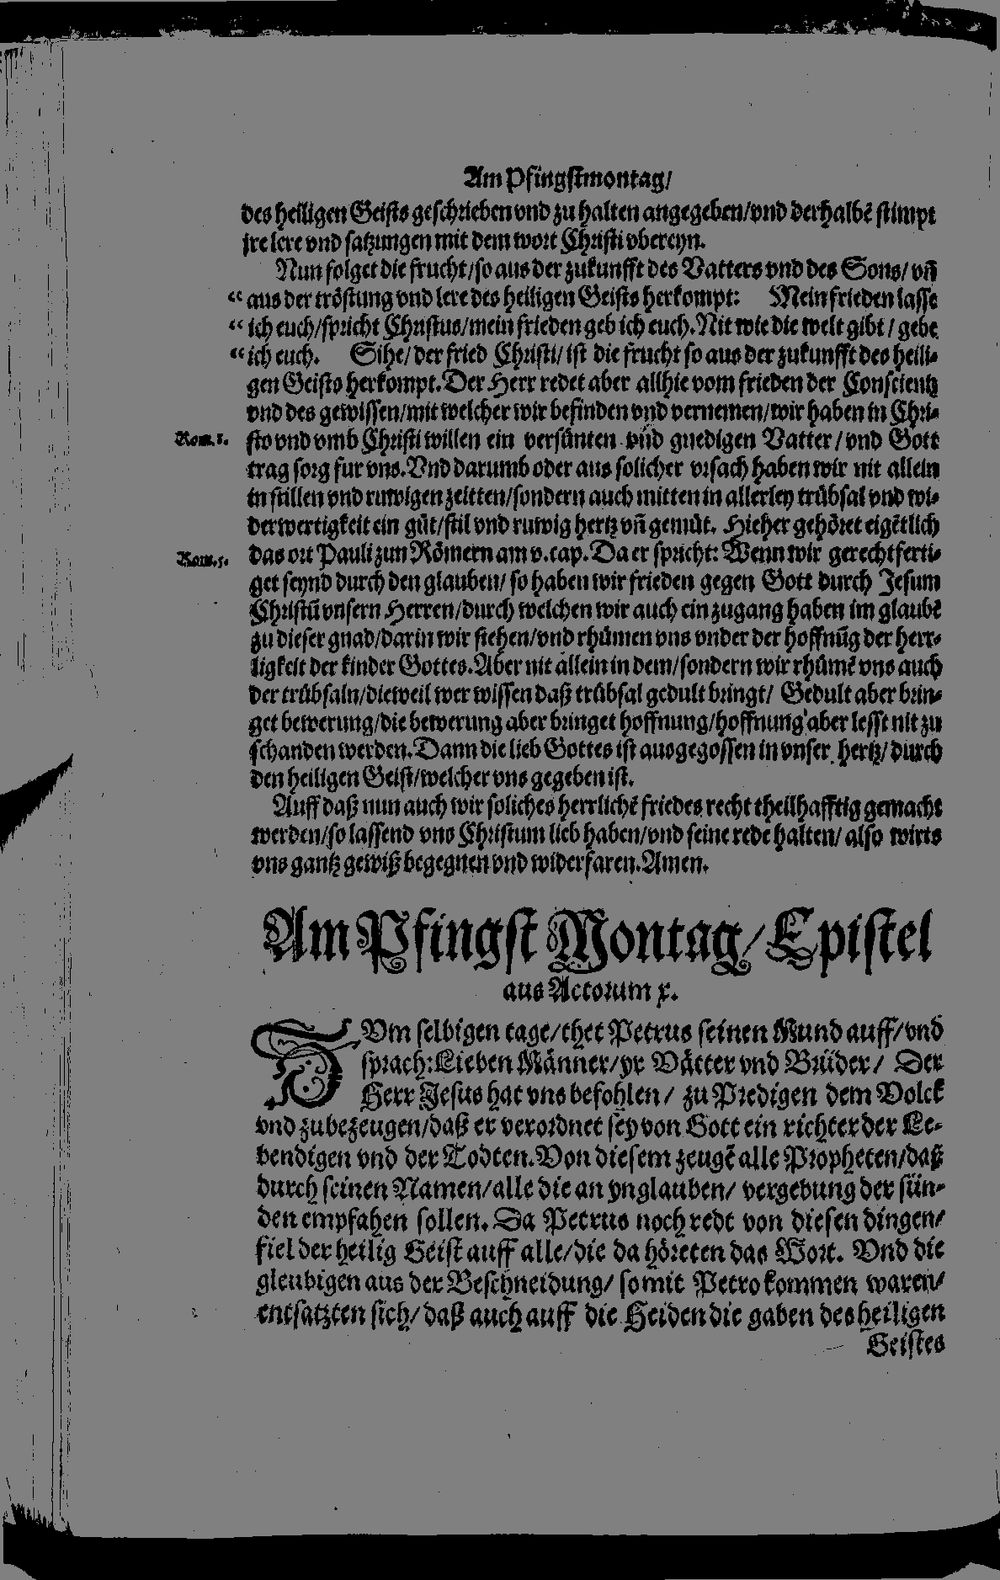 Am Pfingstmontag/
des heiligen Geists geschrieben vnd zu halten angegeben/vnd derhalbē stimpt
jre lere vnd satzungen mit dem wort Christi vbereyn.
Nun folget die frucht/so aus der zukunfft des Vatters vnd des Sons/ vñ
“ aus der tröstung vnd lere des heiligen Geists herkompt: Mein frieden lasse
“ ich euch/spricht Christus/mein frieden geb ich euch. Nit wie die welt gibt / gebe
“ ich euch. Sihe/ der fried Christi/ ist die frucht so aus der zukunfft des heili-
gen Geists herkompt. Der Herr redet aber allhie vom frieden der Conscientz
vnd des gewissen/mit welcher wir befinden vnd vernemen/wir haben in Chri-
Rom. 8. sto vnd vmb Christi willen ein versünten vnd gnedigen Vatter/ vnd Gott
trag sorg fur vns. Vnd darumb oder aus solicher vrsach haben wir nit allein
in stillen vnd ruwigen zeitten/sondern auch mitten in allerley trübsal vnd wi-
derwertigkeit ein güt/stil vnd ruwig hertz vñ gemüt. Hieher gehöret eigētlich
Rom. 5. das ort Pauli zun Römern am v. cap. Da er spricht: Wenn wir gerechtferti-
get seynd durch den glauben/ so haben wir frieden gegen Gott durch Jesum
Christū vnsern Herren/durch welchen wir auch ein zugang haben im glaubē
zu dieser gnad/darin wir stehen/vnd rhümen vns vnder der hoffnūg der herr-
ligkeit der kinder Gottes. Aber nit allein in dem/sondern wir rhümē vns auch
der trübsaln/dieweil wer wissen daß trübsal gedult bringt/ Gedult aber brin-
get bewerung/die bewerung aber bringet hoffnung/hoffnung aber lesst nit zu
schanden werden. Dann die lieb Gottes ist ausgegossen in vnser hertz/ durch
den heiligen Geist/welcher vns gegeben ist.
Auff daß nun auch wir soliches herrlichē friedes recht theilhafftig gemacht
werden/so lassend vns Christum lieb haben/vnd seine rede halten/ also wirts
vns gantz gewiß begegnen vnd widerfaren. Amen.
Am Pfingst Montag/ Epistel
aus Actorum x.
ZVm selbigen tage/thet Petrus seinen Mund auff/vnd
sprach: Lieben Männer/yr Vätter vnd Brüder/ Der
Herr Jesus hat vns befohlen/ zu Predigen dem Volck
vnd zubezeugen/daß er verordnet sey von Gott ein richter der Le-
bendigen vnd der Todten. Von diesem zeugē alle Propheten/daß
durch seinen Namen/alle die an yn glauben/ vergebung der sün-
den empfahen sollen. Da Petrus noch redt von diesen dingen/
fiel der heilig Geist auff alle/die da höreten das Wort. Vnd die
gleubigen aus der Beschneidung/ so mit Petro kommen waren/
entsatzten sich/ daß auch auff die Heiden die gaben des heiligen
Geistes